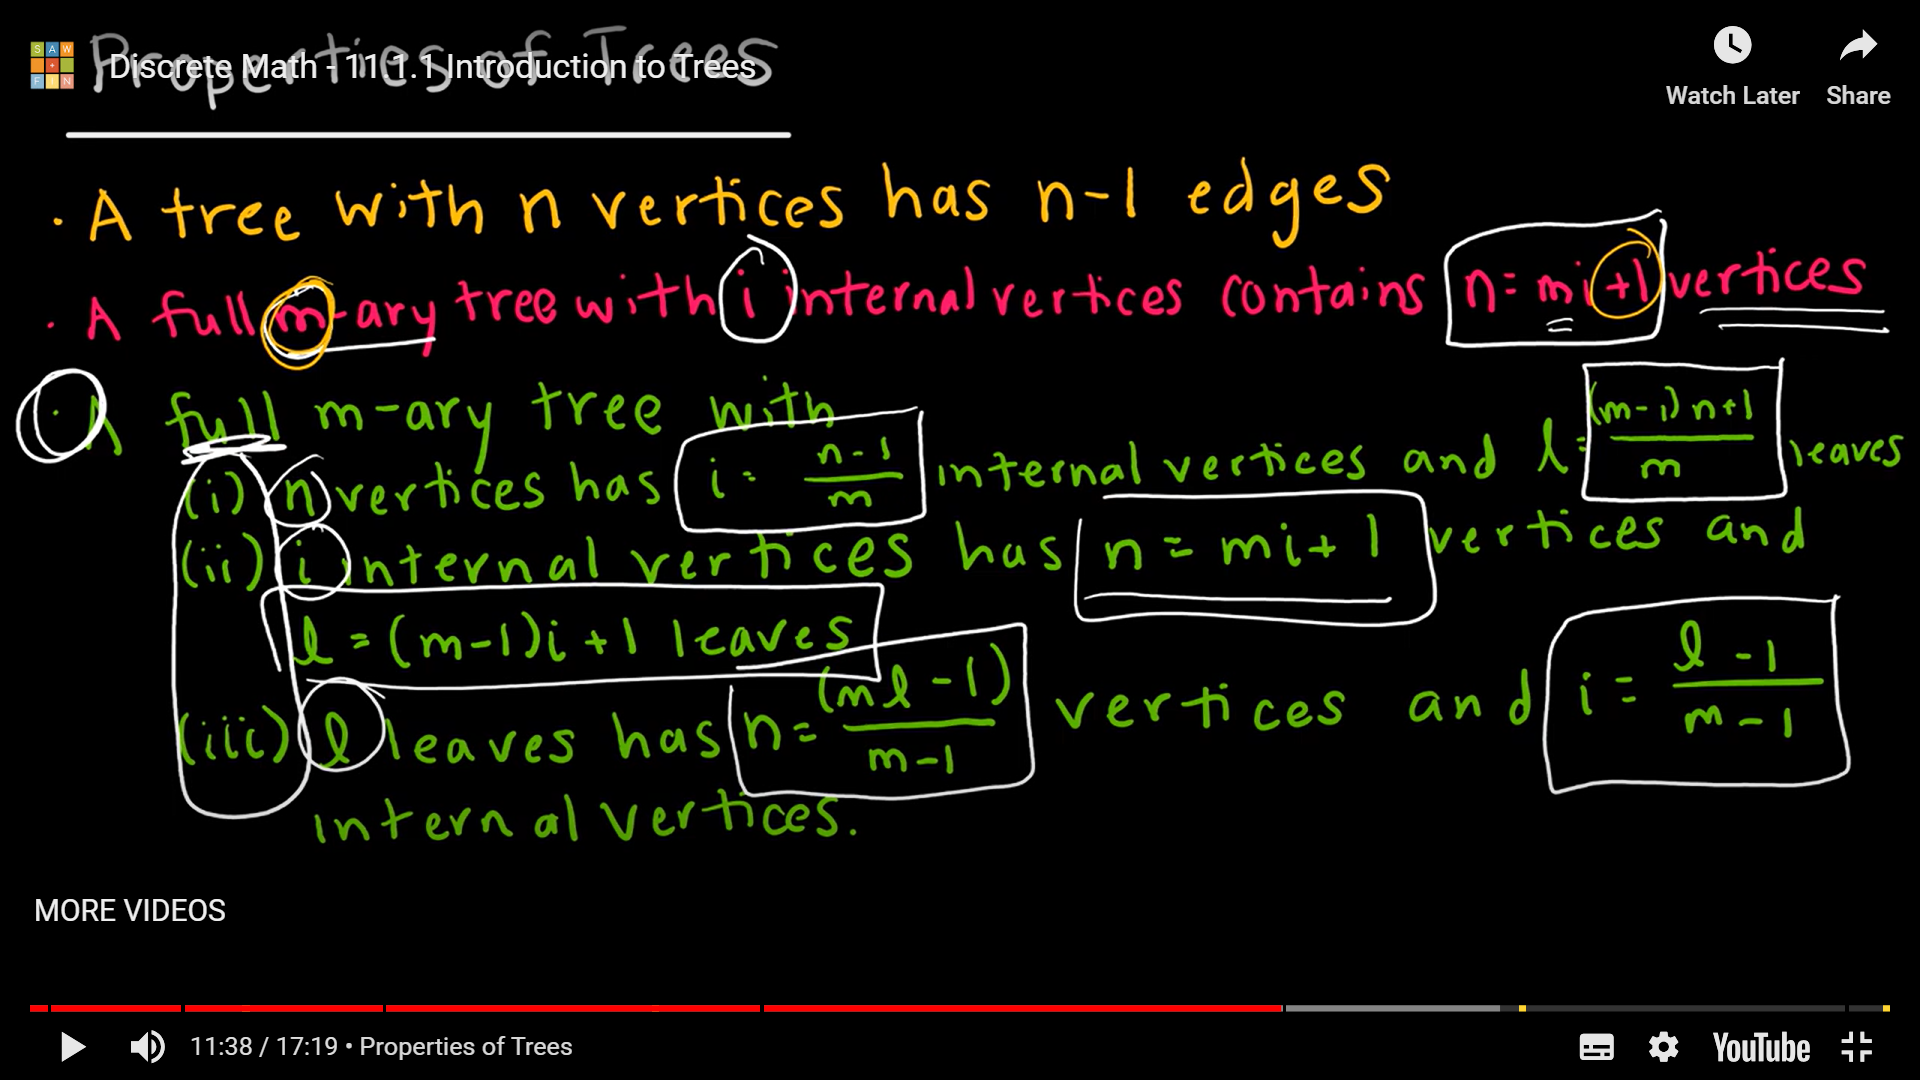 SAW
+
FIN
Properties of Trees
Discrete Math - 11.1.1 Introduction to Trees
Watch Later
Share
· A tree with n vertices has n-1 edges
· A full m-ary tree with i internal vertices contains n = mi+1 vertices
· A full m-ary tree with
(i) n vertices has i = (n-1)/m internal vertices and l = ((m-1)n+1)/m leaves
(ii) i internal vertices has n = mi+1 vertices and
l = (m-1)i+1 leaves
(iii) l leaves has n = (ml-1)/(m-1) vertices and i = (l-1)/(m-1)
internal vertices.
MORE VIDEOS
11:38 / 17:19 • Properties of Trees
YouTube